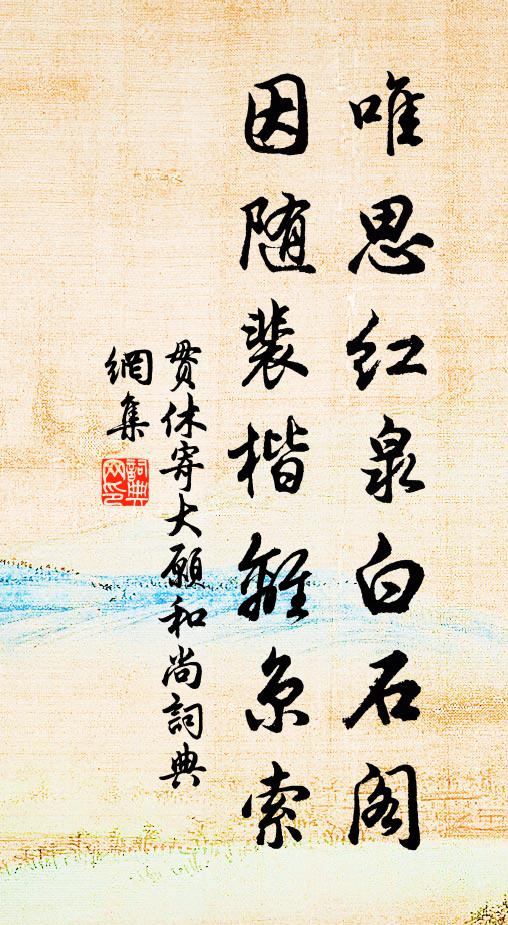 唯思红泉白石阁
因随裴楷離京索
贯休寄大願和尚詞典
網集
詞典
网印